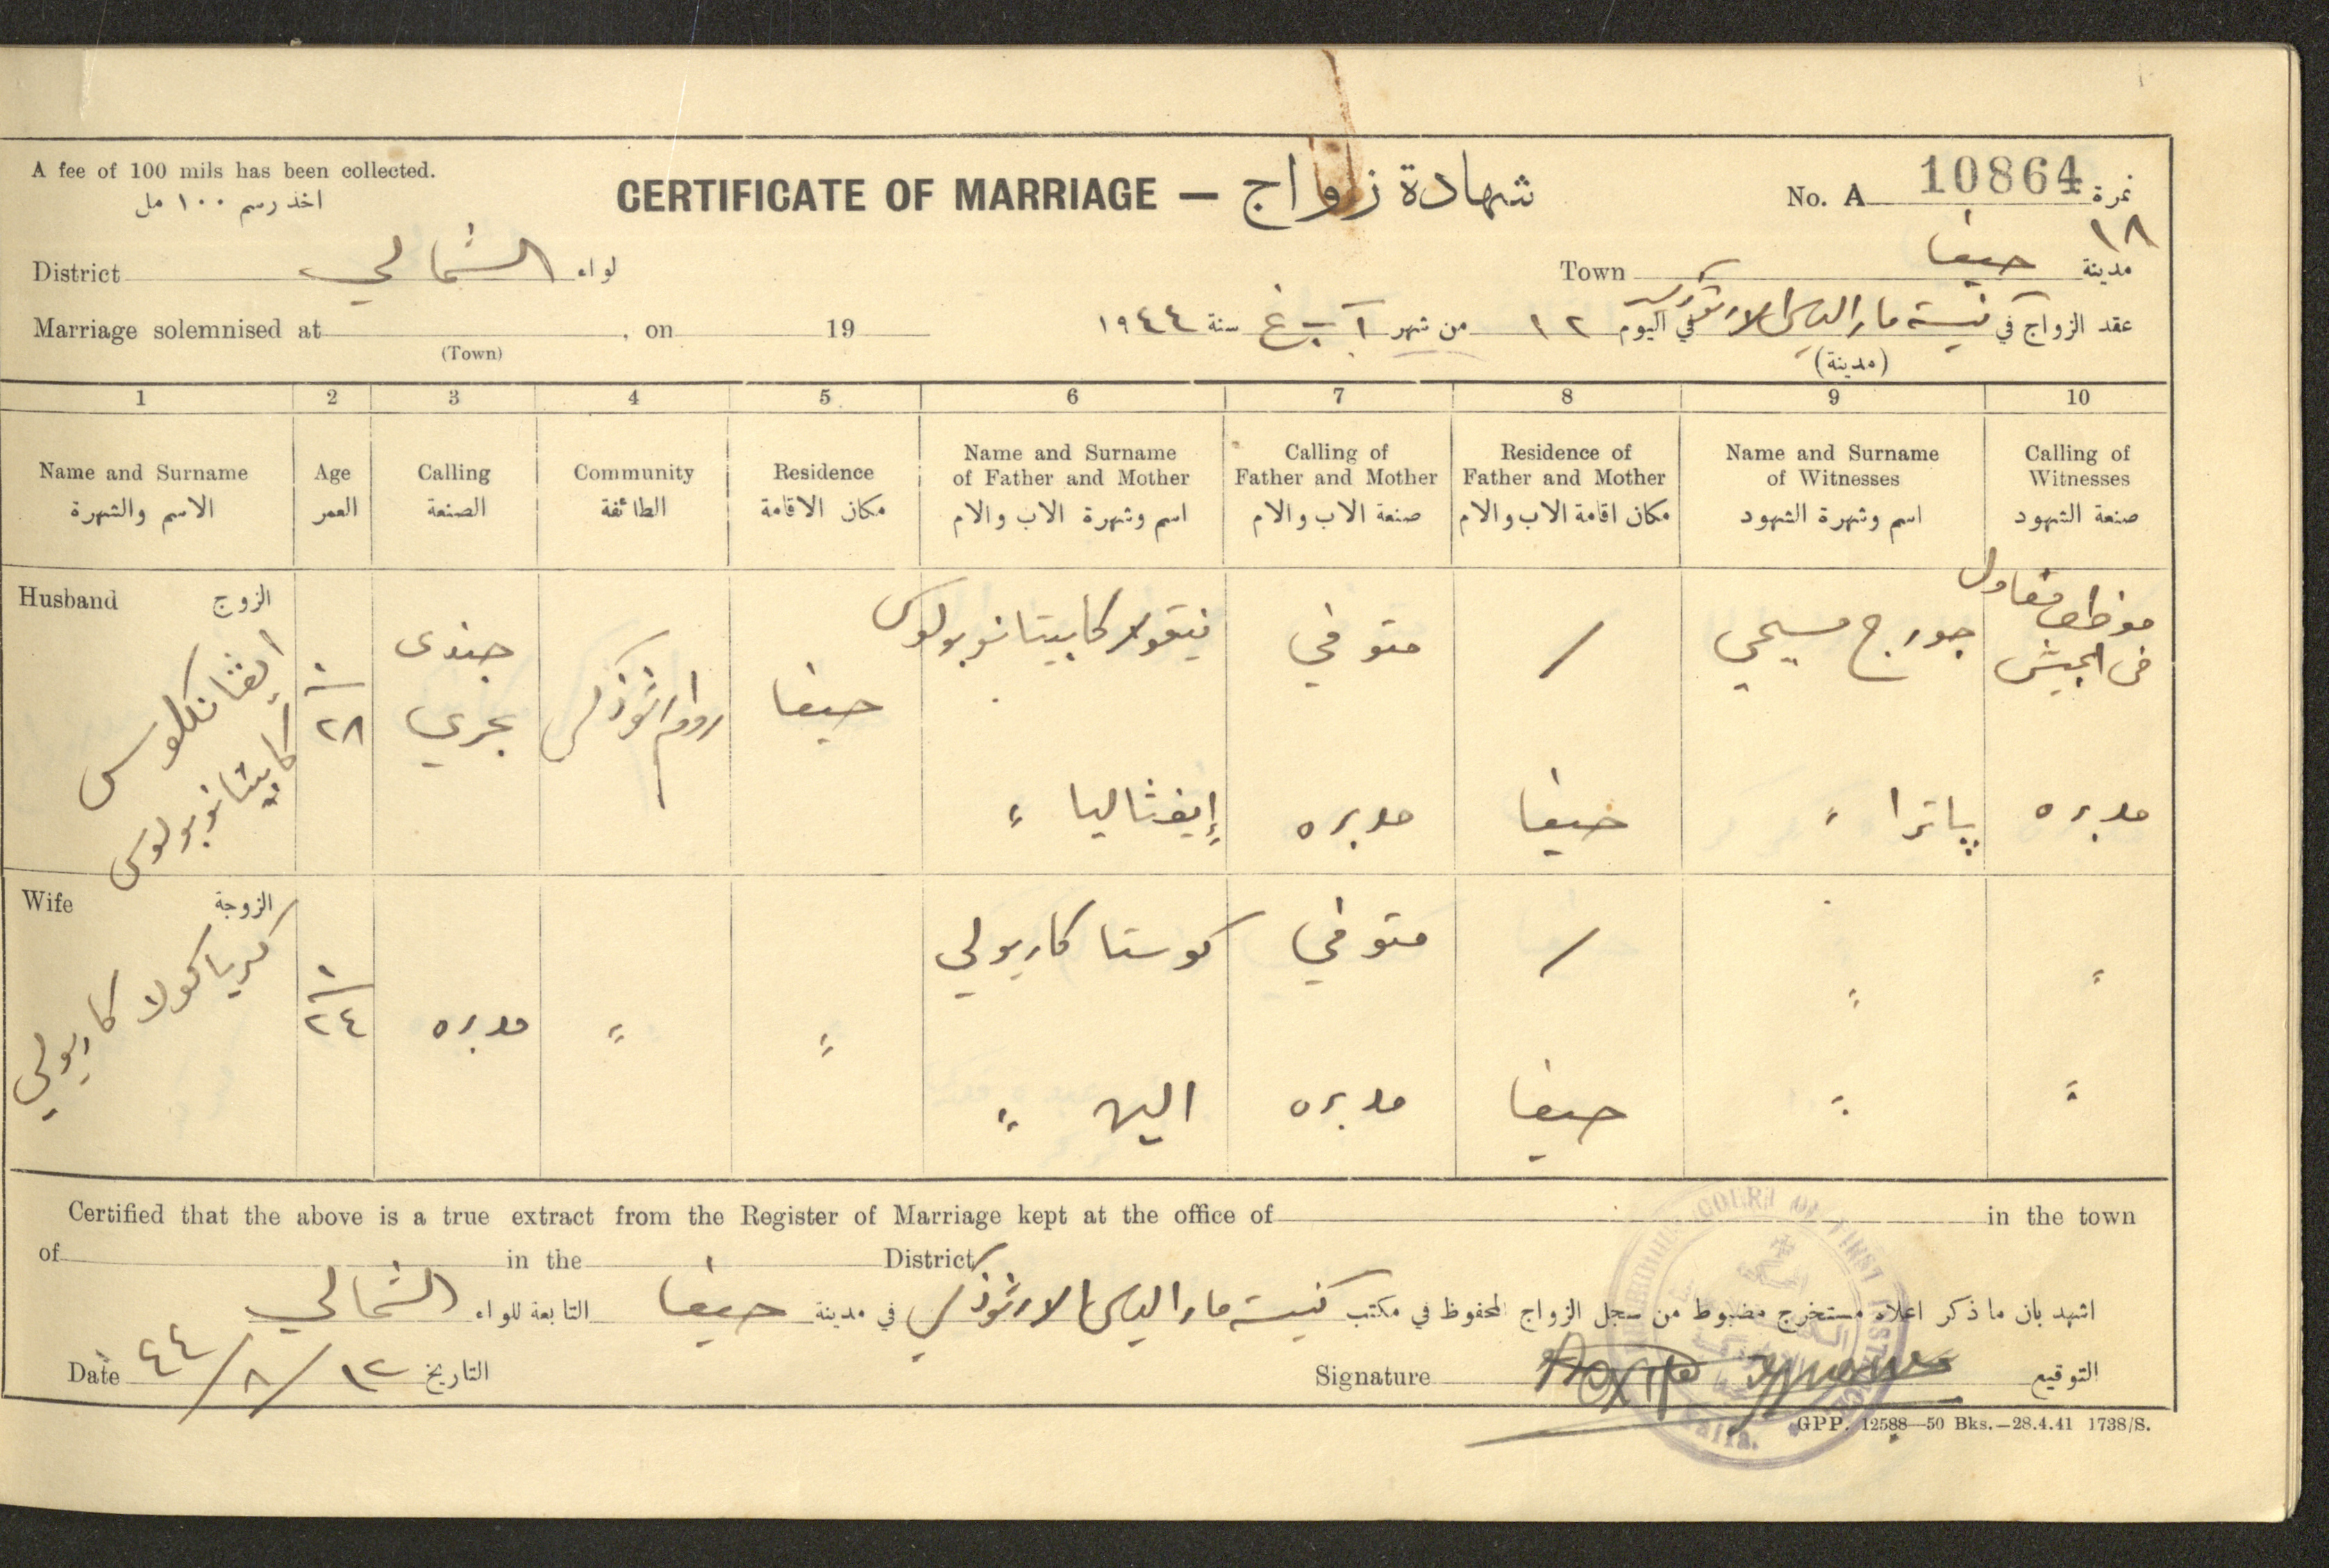 A fee of 100 mils has been collected.
اخذ رسم ١٠٠ مل
CERTIFICATE OF MARRIAGE — شهادة زواج
No. A 10864 نمرة
١٨
District الشمالي لواء
Town حيفا مدينة
Marriage solemnised at , on 19
(Town)
عقد الزواج في كنيسة مار الياس الارثوذكس في اليوم ١٢ من شهر آب غ سنة ١٩٤٤
(مدينة)
1 2 3 4 5 6 7 8 9 10
Name and Surname
الاسم والشهرة
Age
العمر
Calling
الصنعة
Community
الطائفة
Residence
مكان الاقامة
Name and Surname
of Father and Mother
اسم وشهرة الاب والام
Calling of
Father and Mother
صنعة الاب والام
Residence of
Father and Mother
مكان اقامة الاب والام
Name and Surname
of Witnesses
اسم وشهرة الشهود
Calling of
Witnesses
صنعة الشهود
Husband الزوج
كابيتانوبولوس
٢٨
جندى
بحري
روم ارثوذكس
حيفا
نيقولا كابيتانوبولوس
متوفي
/
جورج مسيحي
مقاول
موظف
في الجيش
إيفثاليا "
مدبره
حيفا
پاترا "
مدبره
Wife الزوجة
كرياكولا كاريولي
٢٤
مدبره
"
"
كوستا كاريولي
متوفي
/
"
"
الين "
مدبره
حيفا
"
"
Certified that the above is a true extract from the Register of Marriage kept at the office of in the town
of in the District
اشهد بان ما ذكر اعلاه مستخرج مضبوط من سجل الزواج المحفوظ في مكتب كنيسة مار الياس الارثوذكس في مدينة حيفا التابعة للواء الشمالي
Date ١٢/٨/٤٤ التاريخ
Signature التوقيع
COURT OF FIRST INSTANCE
Haifa.
GPP. 12588—50 Bks.—28.4.41 1738/S.